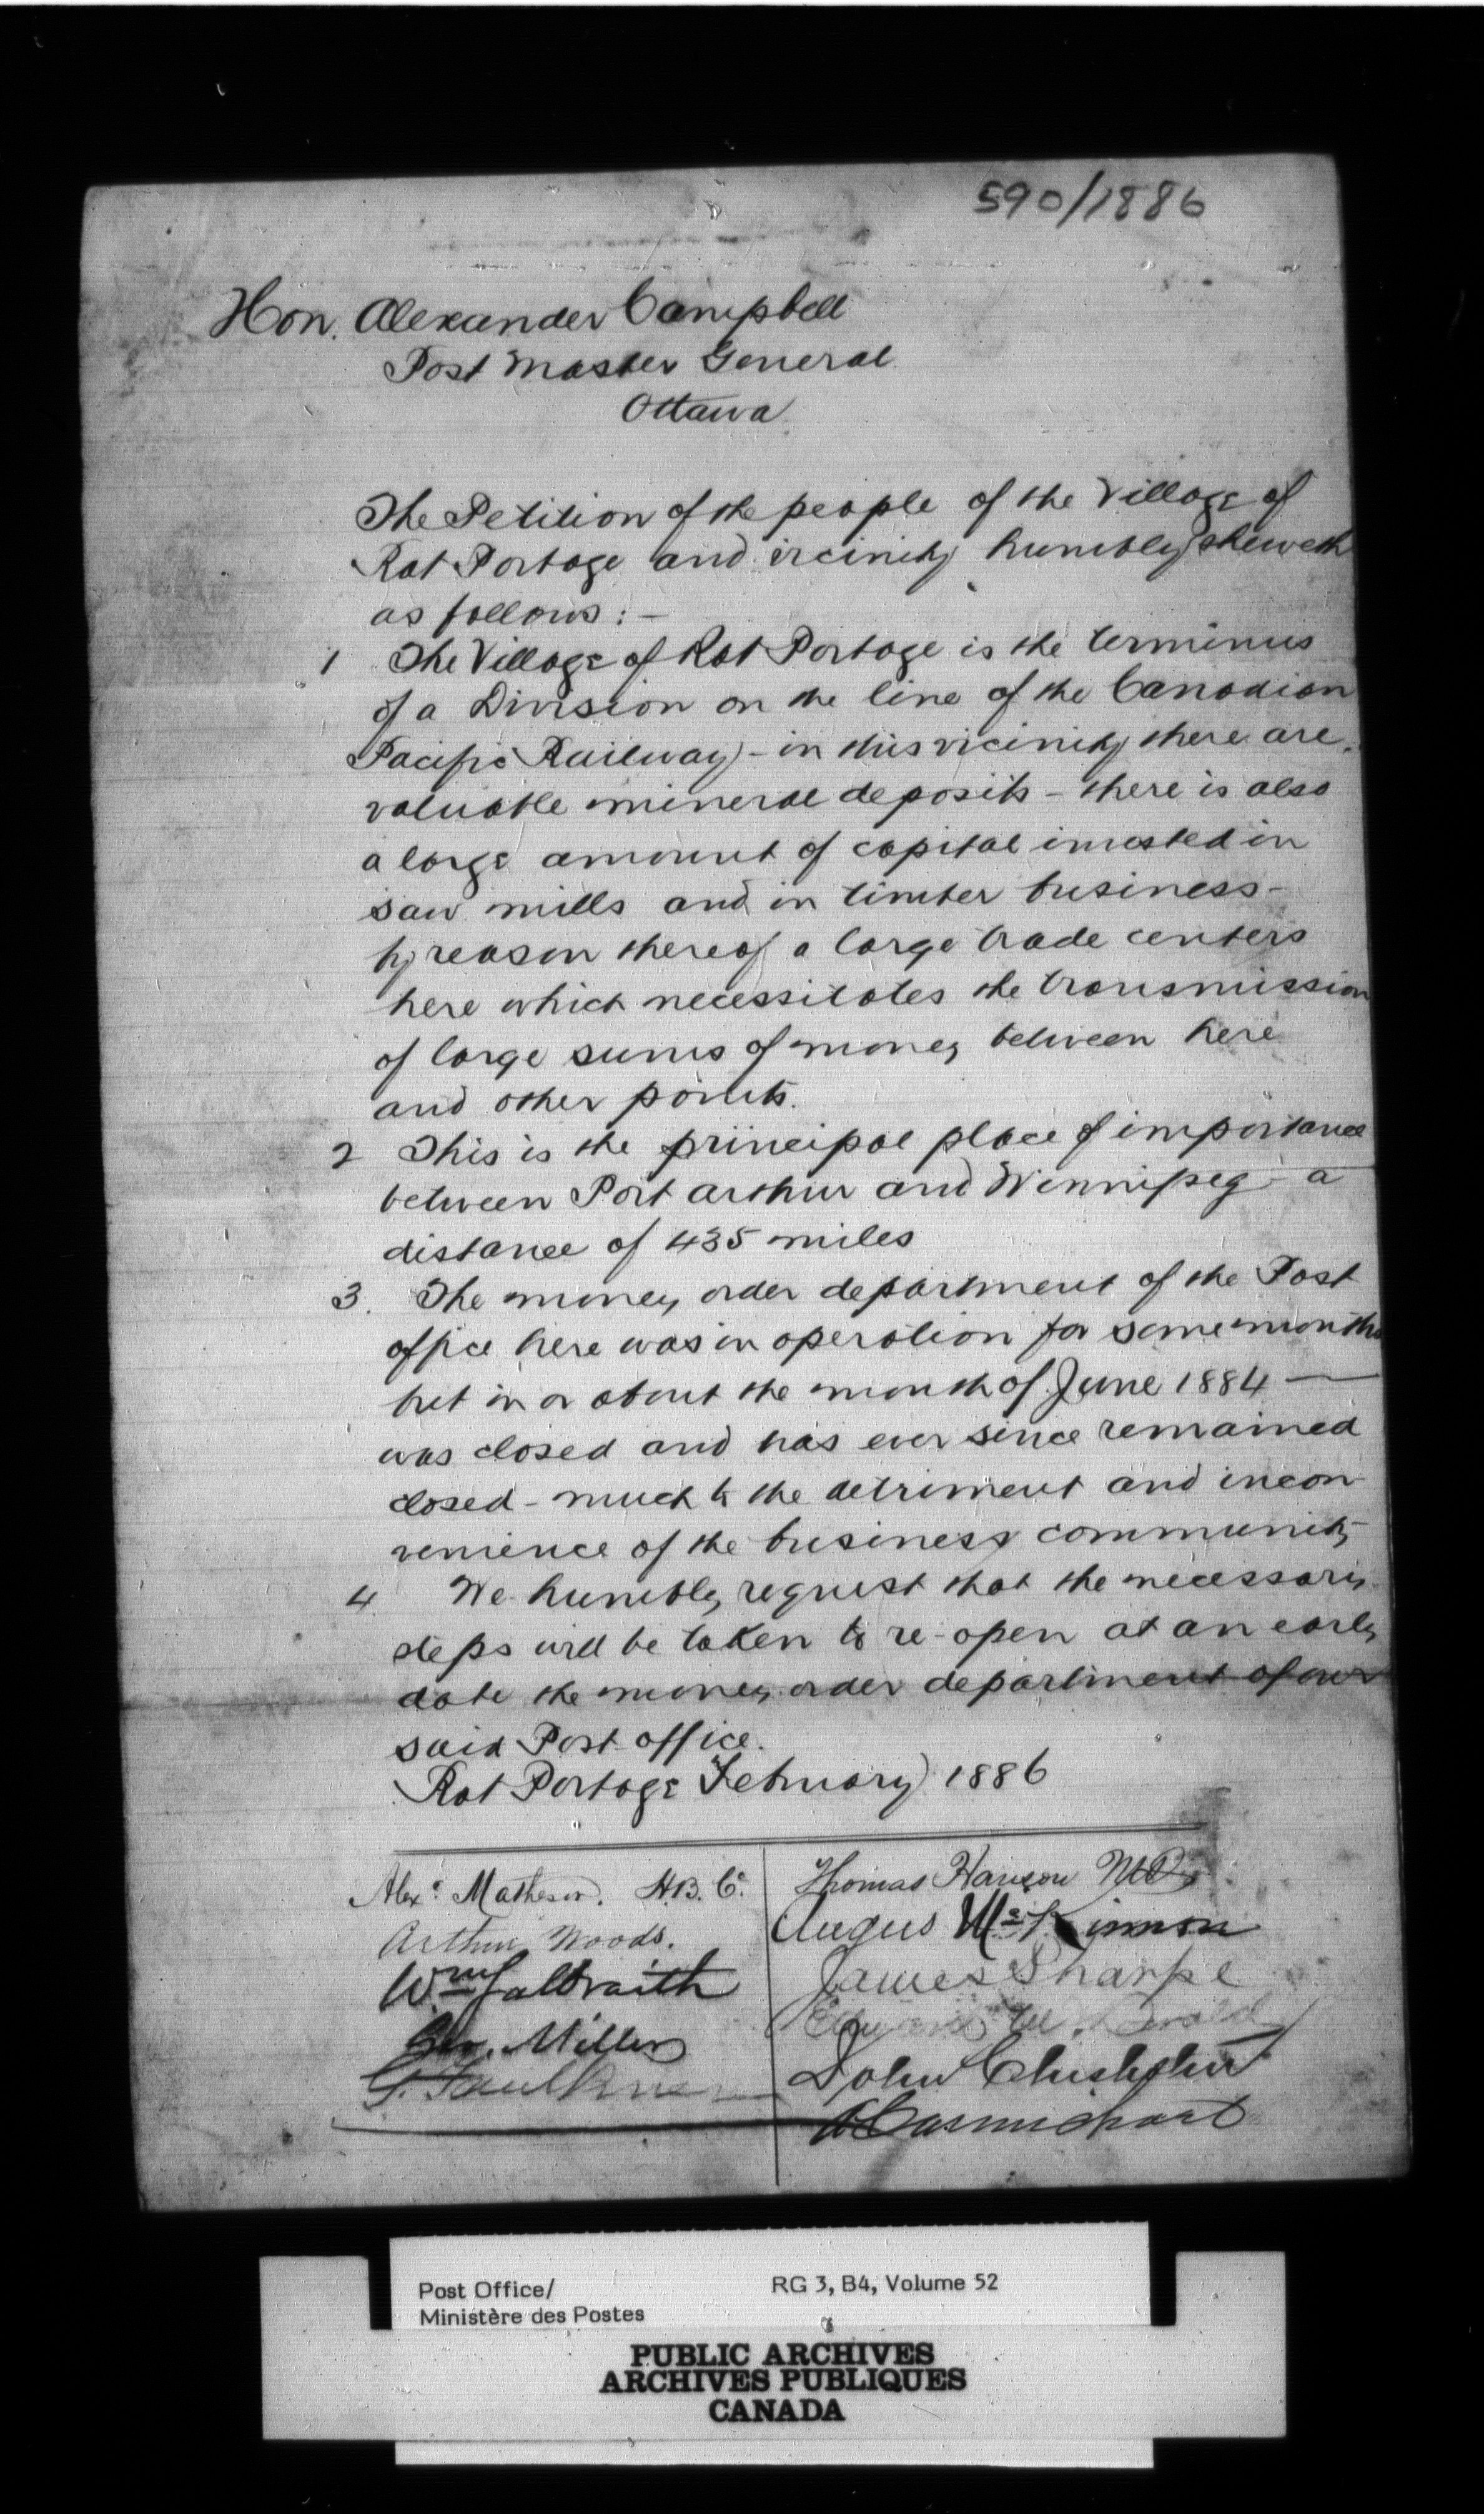 590/1886
Hon. Alexander Campbell
Post Master General
Ottawa
The Petition of the people of the Village of
Rat Portage and vicinity humbly sheweth
as follows: -
1 The Village of Rat Portage is the terminus
of a Division on the line of the Canadian
Pacific Railway - in this vicinity there are
valuable mineral deposits - there is also
a large amount of capital invested in
saw mills and in timber business -
by reason thereof a large trade centers
here which necessitates the transmission
of large sums of money between here
and other points.
2 This is the principal place of importance
between Port Arthur and Winnipeg - a
distance of 435 miles
3. The money order department of the Post
office here was in operation for some months
but in or about the month of June 1884 —
was closed and has ever since remained
closed - much to the detriment and incon-
venience of the business community
4 We humbly request that the necessary
steps will be taken to re-open at an early
date the money order department of our
said Post office.
Rat Portage February 1886
Alexr. Matheson. H.B.Co.
Arthur Woods.
Wm Galbraith
Geo. Miller
G. Faulkner
Thomas Hanson M.D.
Angus McKinnon
James Sharpe
John Chisholm
Post Office/
Ministère des Postes
RG 3, B4, Volume 52
PUBLIC ARCHIVES
ARCHIVES PUBLIQUES
CANADA